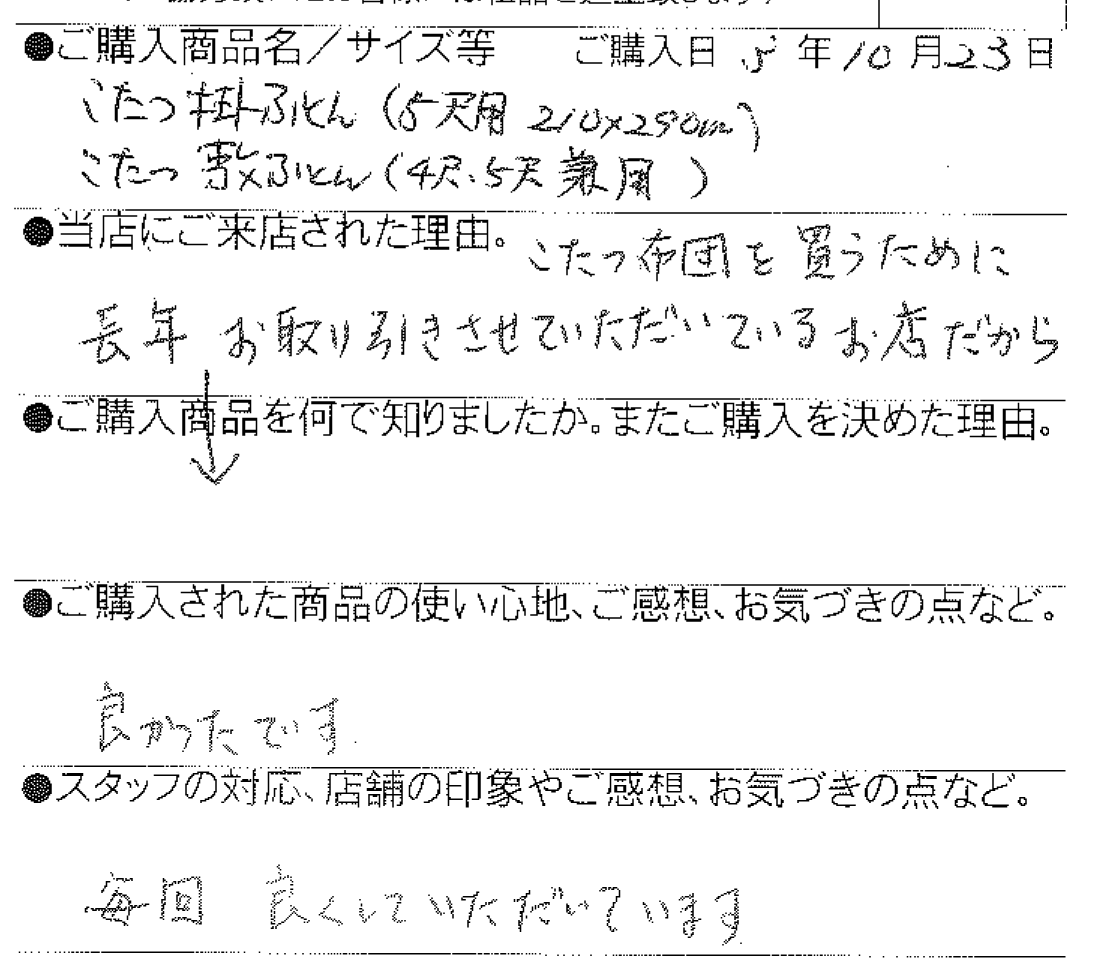 ●ご購入商品名／サイズ等　ご購入日 5年10月23日
こたつ掛ふとん（5尺用 210×290cm）
こたつ敷ふとん（4尺.5尺兼用）
●当店にご来店された理由。こたつ布団を買うために
長年 お取り引きさせていただいているお店だから
●ご購入商品を何で知りましたか。またご購入を決めた理由。
●ご購入された商品の使い心地、ご感想、お気づきの点など。
良かったです.
●スタッフの対応、店舗の印象やご感想、お気づきの点など。
毎回 良くしていただいています